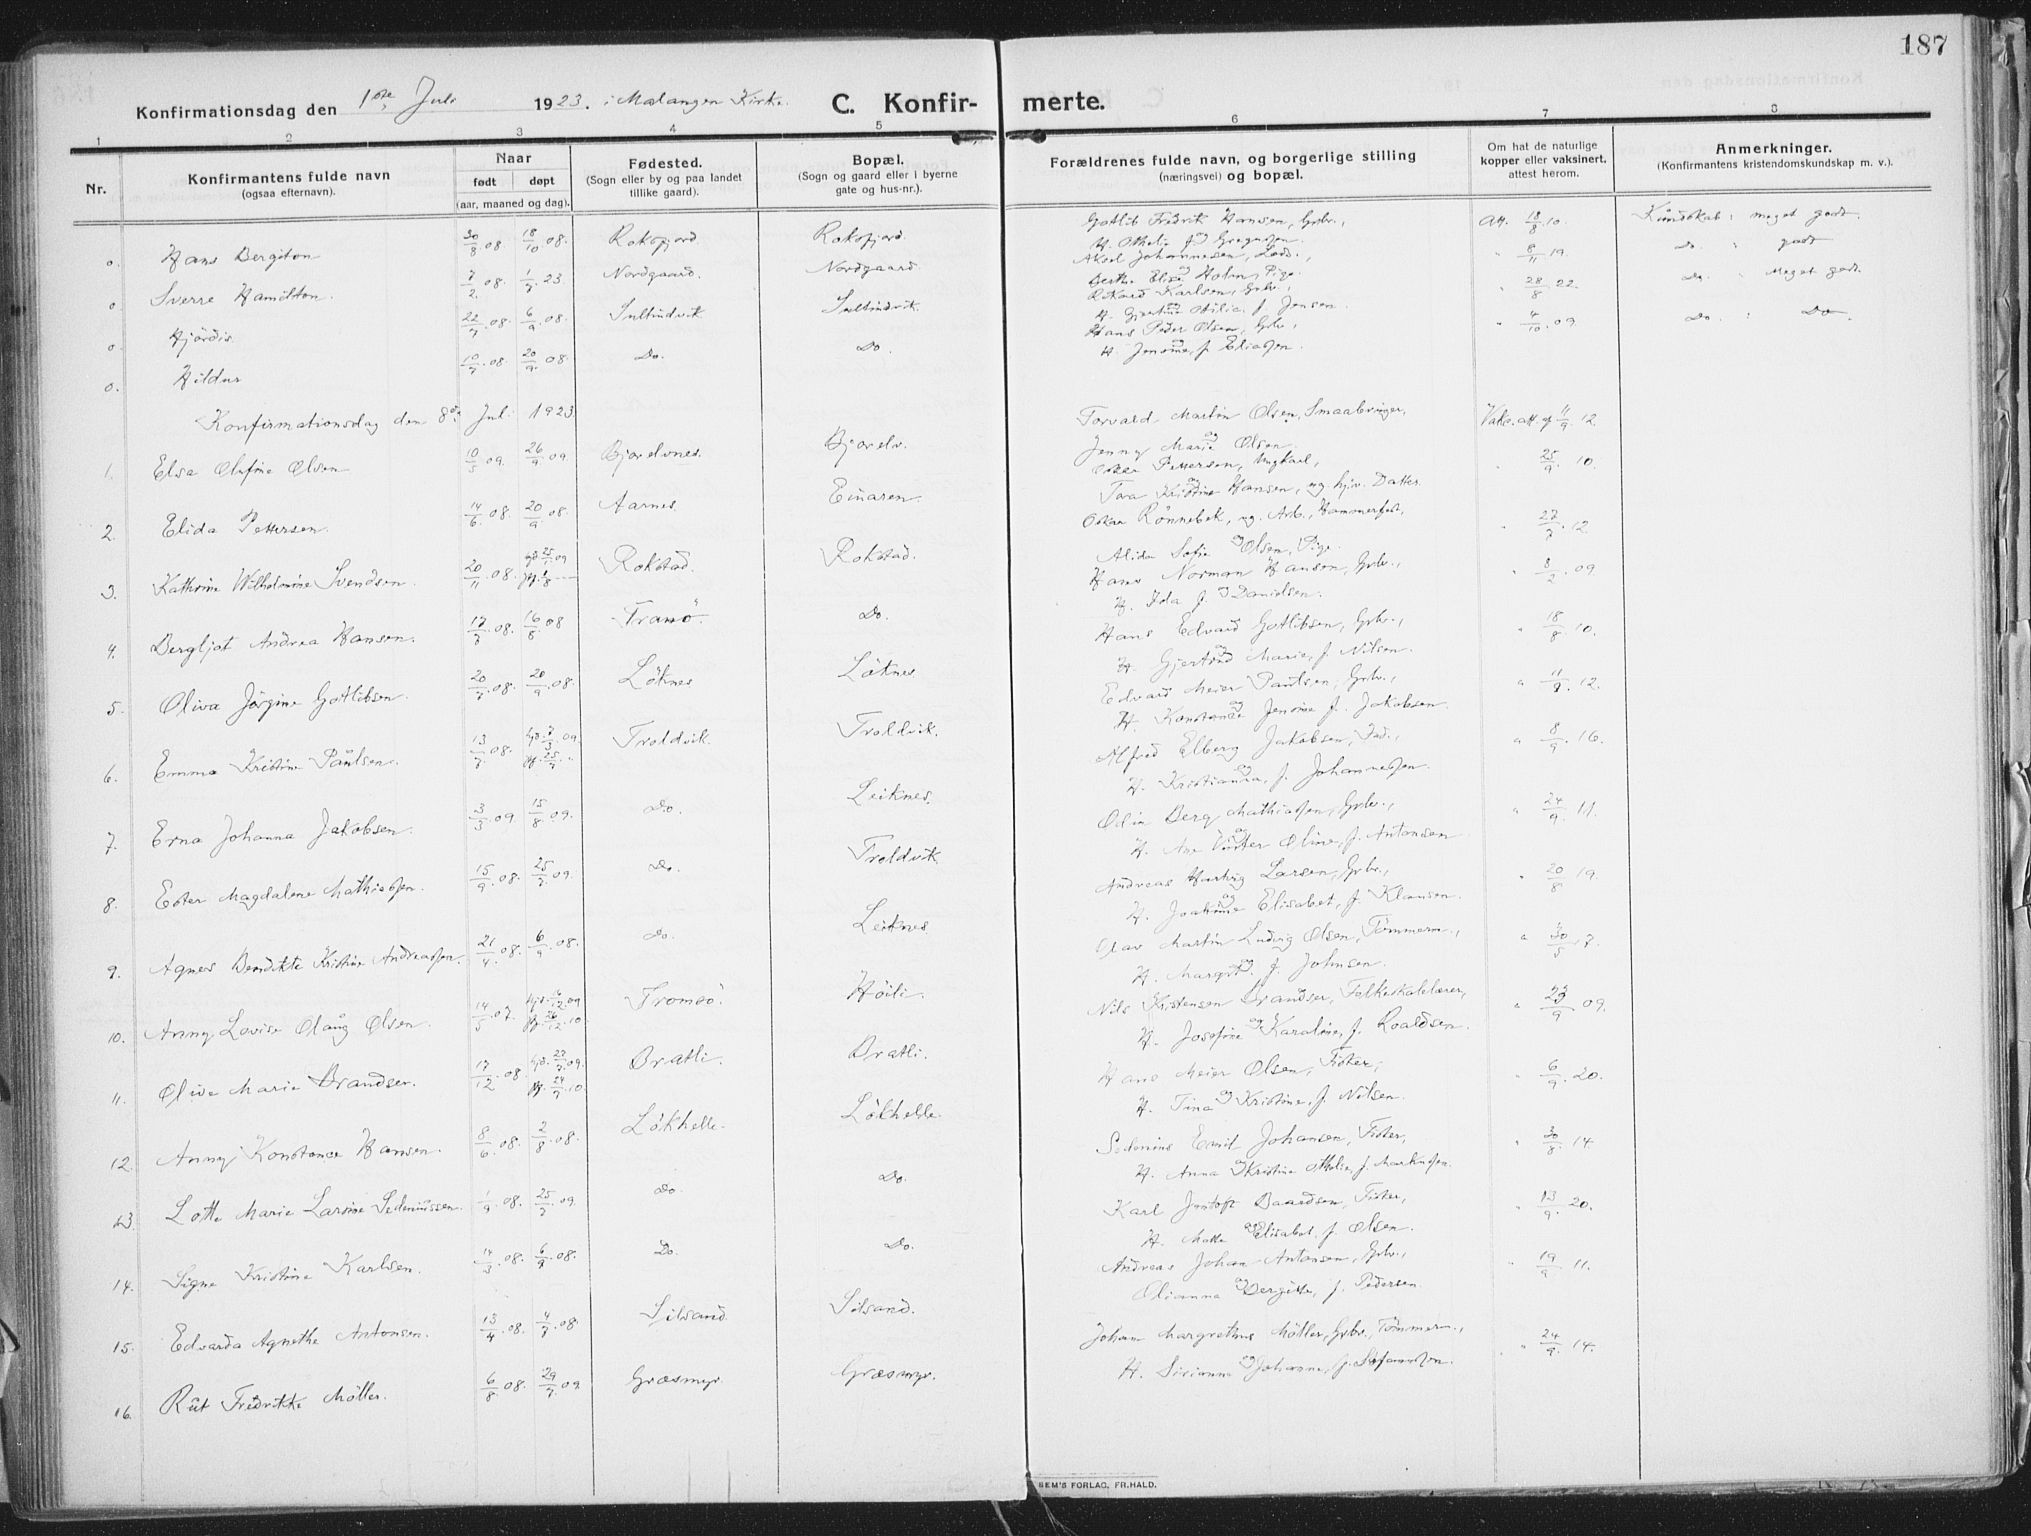 187
Konfirmationsdag den 1ste Juli 1923. i Malangen Kirke. C. Konfir- merte.
1 2 3 4 5 6 7 8
Nr. Konfirmantens fulde navn (ogsaa efternavn). Naar født døpt (aar, maaned og dag). Fødested. (Sogn eller by og paa landet tillike gaard). Bopæl. (Sogn og gaard eller i byerne gate og hus-nr.). Forældrenes fulde navn, og borgerlige stilling (næringsvei) og bopæl. Om hat de naturlige kopper eller vaksinert, attest herom. Anmerkninger. (Konfirmantens kristendomskundskap m. v.).
o. Hans Bergiton 30/8 08. 18/10 08. Roksfjord. Roksfjord. Gotlib Fredrik Hansen, Grbr., Att. 18/8 10. Kundskab: meget godt.
H. Othelie f. Gregusen.
o Sverre Hamilton. 7/2 08. 1/7 23. Nordgaard. Nordgaard. Aksel Johannesen, " 8/11 19. Do. : godt
Berthe Elise Holm, Pige.
o. Hjördis. 22/7 08. 6/9 08. Sultindvik. Sultindvik. Rikard Karlsen, Grbr., " 28/8 22. Do. : Meget godt.
H. Gjertine Otilie f. Jensen.
o. Hildur 10/7 08. 20/9 08. Do. Do. Hans Peder Olsen, Grbr., " 4/10 09. Do. : Do
H. Jensine, f. Eliassen.
Konfirmationsdag den 8de Juli 1923
1. Elsa Olufine Olsen 10/5 09. 26/9 09. Bjorelvnes. Bjorelv. Torvald Martin Olsen, Smaabruger, Vaks. att. af 11/9 12.
Jenny Marie Olsen.
2. Elida Pettersen. 14/6 08. 20/9 08. Aarnes. Einaren. Oskar Pettersen, Ungkarl, " 25/9 10.
Tora Kristine Hansen, ug. hjv. Datter.
3. Kathrine Wilhelmine Svendsen. 20/11 08. Rokstad. Rokstad. Oskar Rönnebek, ug. Arb., Hammerfest, " 27/7 12
Alida Sofie Olsen, Pige.
4. Bergljot Andrea Hansen. 17/7 08. 16/8 08 Tranö. Do. Hans Norman Hanson, Grbr., " 8/2 09
H. Ida f. Danielsen.
5. Oliva Jörgine Gotlibsen. 20/7 08. 20/9 08. Löknes Löknes Hans Edvard Gotlibsen, Grbr., " 18/8 10.
H. Gjertrud Marie, f. Nilsen.
6. Emma Kristine Paulsen. 13/7 08. Troldvik. Troldvik. Edvard Meier Paulsen, Grbr., " 11/9 12.
H. Konstance Jensine f. Jakobsen.
7. Erna Johanna Jakobsen. 3/3 09. 15/8 09. Do. Leiknes. Alfred Elberg Jakobsen, " 8/9 16.
H. Kristianna, f. Johannessen.
8. Ester Magdalene Mathiassen. 15/9 08. 25/7 09. Do. Troldvik Odin Berg Mathiassen, Grbr., " 24/9 11.
H. Oline, f. Antonsen
9. Agnes Bendikte Kristine Andreassen. 21/4 08. 6/9 08. Do. Leiknes Andreas Hartvig Larsen, Grbr., " 20/8 19.
H. Joakime Elisabet, f. Klausen.
10. Anny Lovise Olaug Olsen. 14/5 07. Tromsö. Höili. Olav Martin Ludvig Olsen, Tömmerm.,
H. Margit f. Johnsen.
11. Olive Marie Brandser. 17/12 08. Bratli. Bratli. Nils Kristensen Brandser, Folkeskolelærer, " 23/9 09.
H. Josefine Karoline, f. Roaldsen.
12. Anny Konstance Hansen. 8/6 08. 2/8 08. Lökhelle. Lökhelle. Hans Meier Olsen, Fisker, " 6/9 20.
H. Tina Kristine, f. Nilsen.
13. Lotte Marie Larsine Sedeniussen. 1/9 08. 25/7 09. Do. Do. Sedenius Emil Johansen, Fisker, " 30/8 14.
H. Anna Kristine Othelie, f. Markussen.
14. Signe Kristine Karlsen. 14/3 08. 6/9 08. Do. Do. Karl Jentoft Baardsen, Fisker, " 13/9 20.
H. Mette Elisabet, f. Olsen.
15. Edvarda Agnethe Antonsen. 13/4 08. 4/7 08. Silsand. Silsand. Andreas Johan Antonsen, Grbr., " 19/9 11.
Olianna Bergitte, f. Pedersen.
16. Rut Fredrikke Möller. 6/8 08. 29/7 09. Græsmyr. Græsmyr. Johan Margrethus Möller, Grbr., Tömmerm., " 24/9 14.
H. Sirianna Johanne, f. Stefanussen.
SEM'S FORLAG, FR.HALD.